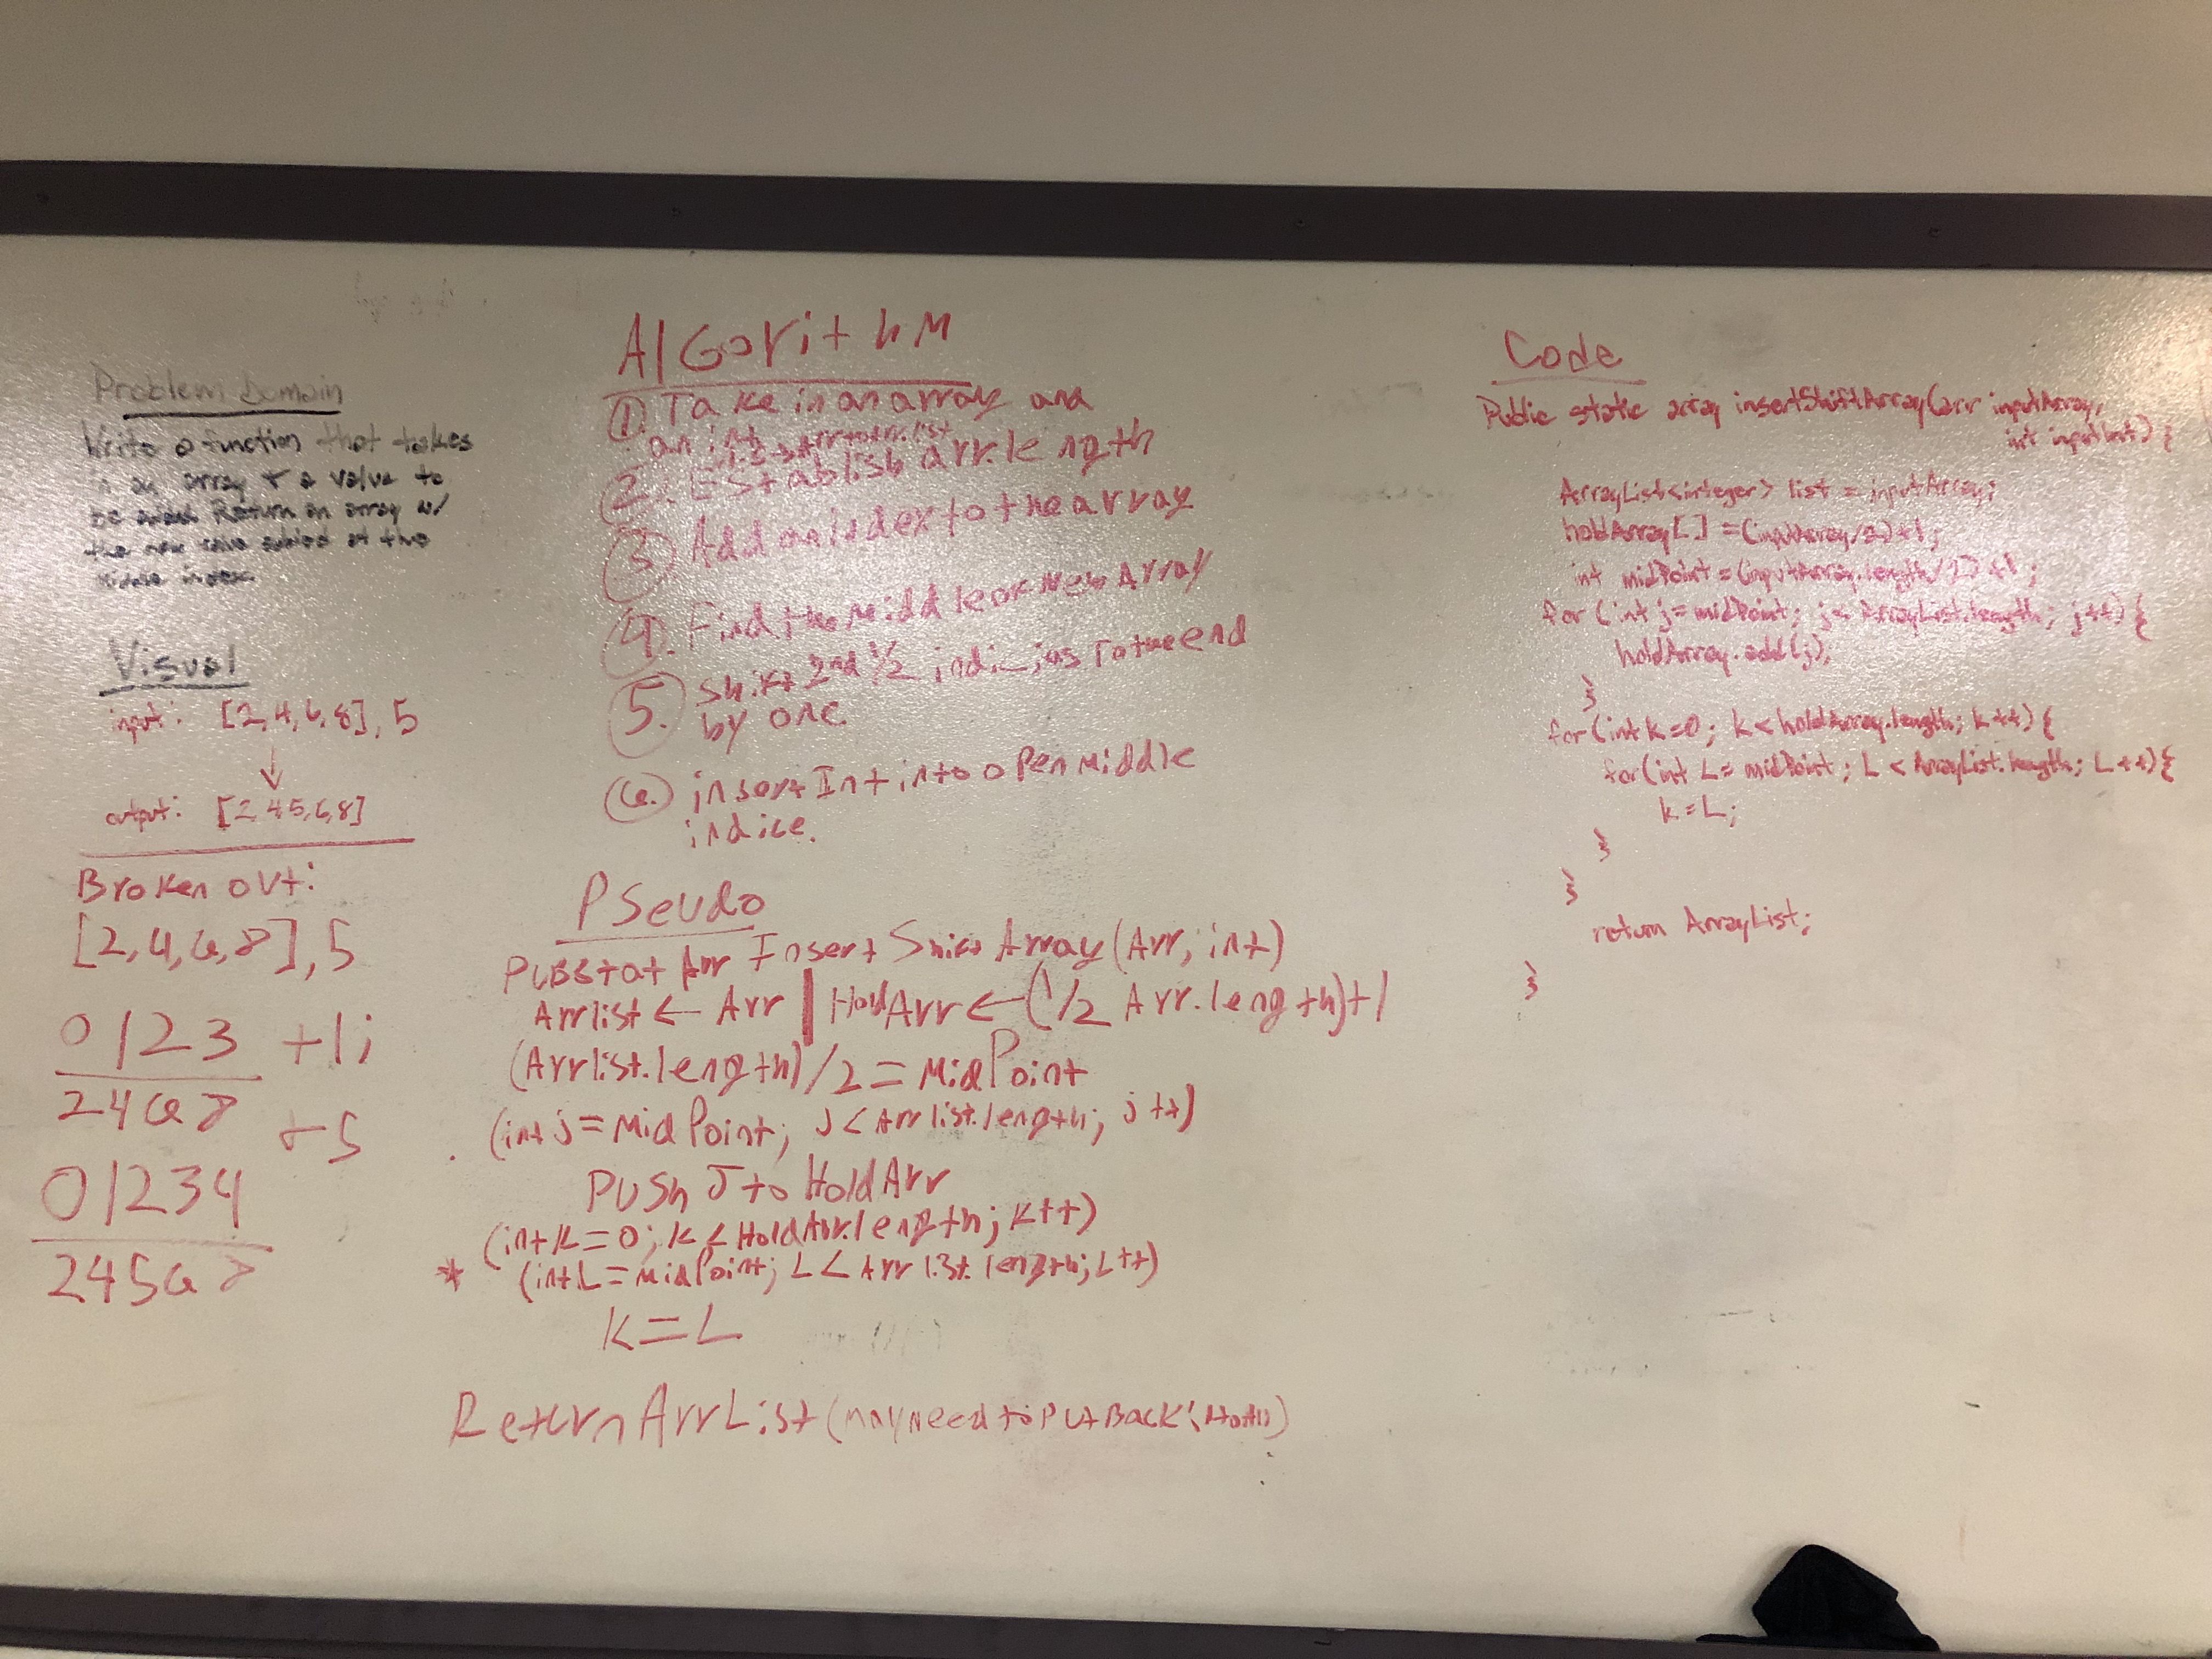 Problem Domain
Write a function that takes
in an array & a value to
be added. Return an array w/
the new value added at the
middle index.
Visual
input: [2,4,6,8], 5
↓
output: [2,4,5,6,8]
Broken out:
[2,4,6,8], 5
0123 +1i
2468 +5
01234
24568
AlGorithM
1. Take in an array and
an int
2. Establish arr.length
3. Add an index to the array
4. Find the Middle of New Array
5. Shift 2nd 1/2 to the end
by one.
6. insert Int into open Middle
indice.
PSeudo
PUBStat Arr InsertShiftArray(Arr, int)
Arrlist ← Arr | HoldArr ← (1/2 Arr.length)+1
(Arrlist.length)/2 = MidPoint
(int j = MidPoint; J < Arrlist.length; j++)
PUSh J to HoldArr
(int K=0; K < HoldArr.length; K++)
* (int L = MidPoint; L < Arrlist.length; L++)
K=L
Return ArrList (may need to Put Back
Code
Public static array insertShiftArray(arr inputArray,
int inputInt) {
ArrayList<integer> list = inputArray;
holdArray[.] = (inputArray/2)+1;
int midPoint = (inputArray.length/2)+1;
for (int j = midPoint; j < ArrayList.length; j++) {
holdArray.add(j);
}
for (int k=0; k < holdArray.length; k++) {
for (int L = midPoint; L < ArrayList.length; L++) {
k = L;
}
}
return ArrayList;
}